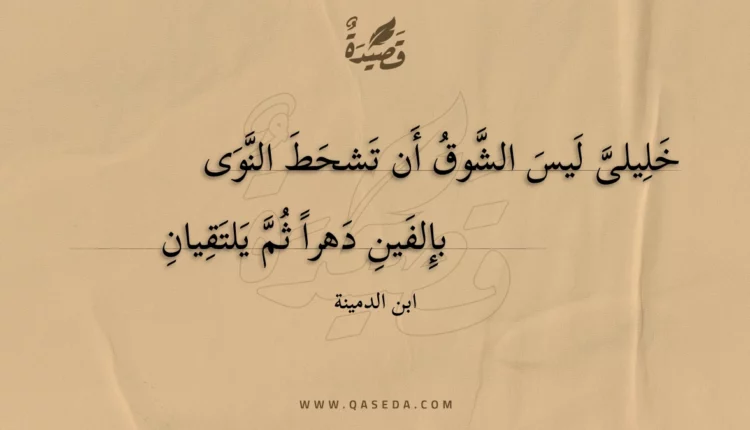 قَصِيْدَةٌ
خَلِيلىَّ لَيسَ الشَّوقُ أَن تَشحَطَ النَّوَى
بإِلفَينِ دَهراً ثُمَّ يَلتَقِيانِ
ابن الدمينة
WWW.QASEDA.COM